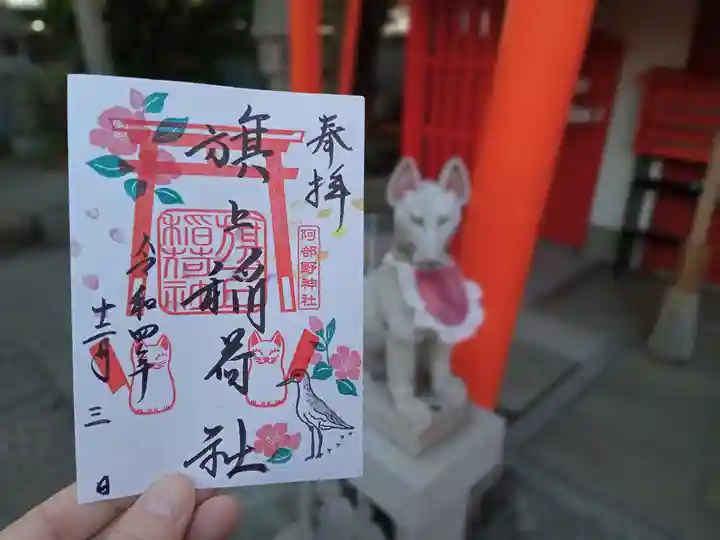 奉拝
阿部野神社
旗上稲荷社
旗上
稲荷社
令和四年
十二月三日